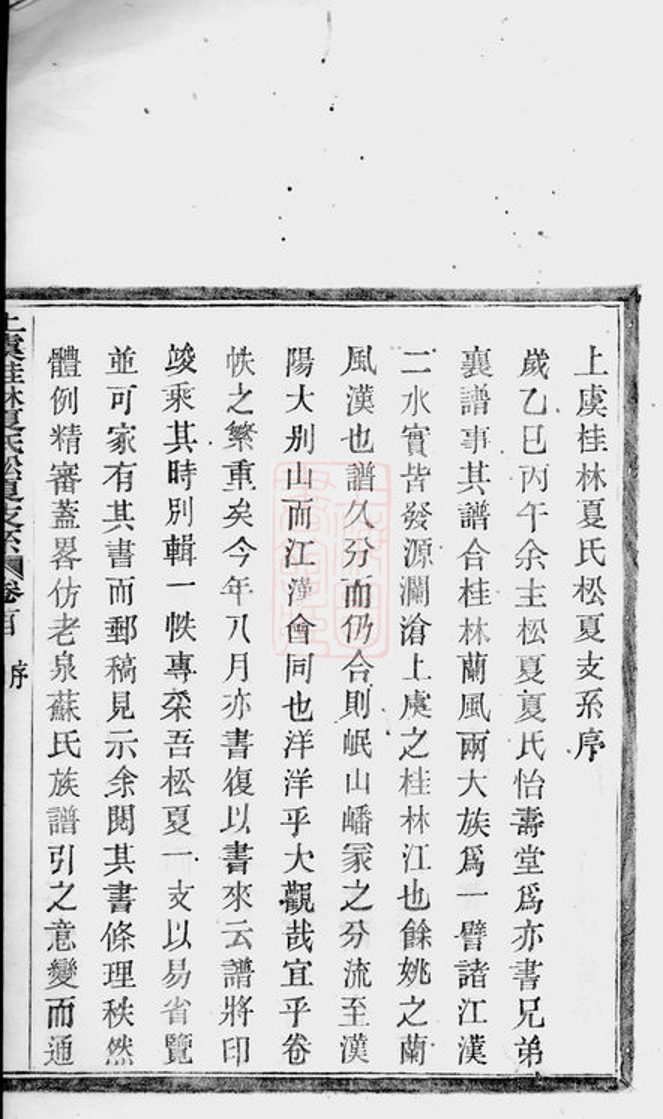 上虞桂林夏氏松夏支系序
歲乙巳丙午余主松夏夏氏怡壽堂爲亦書兄弟
襄譜事其譜合桂林蘭風兩大族爲一譬諸江漢
二水實皆發源瀾滄上虞之桂林江也餘姚之蘭
風漢也譜久分而仍合則岷山嶓冢之分流至漢
陽大別山而江漢會同也洋洋乎大觀哉宜乎卷
帙之繁重矣今年八月亦書復以書來云譜將印
竣乘其時別輯一帙專槩吾松夏一支以易省覽
並可家有其書而郵稿見示余閱其書條理秩然
體例精審蓋畧仿老泉蘇氏族譜引之意變而通
上虞桂林夏氏松夏支系 卷首 序